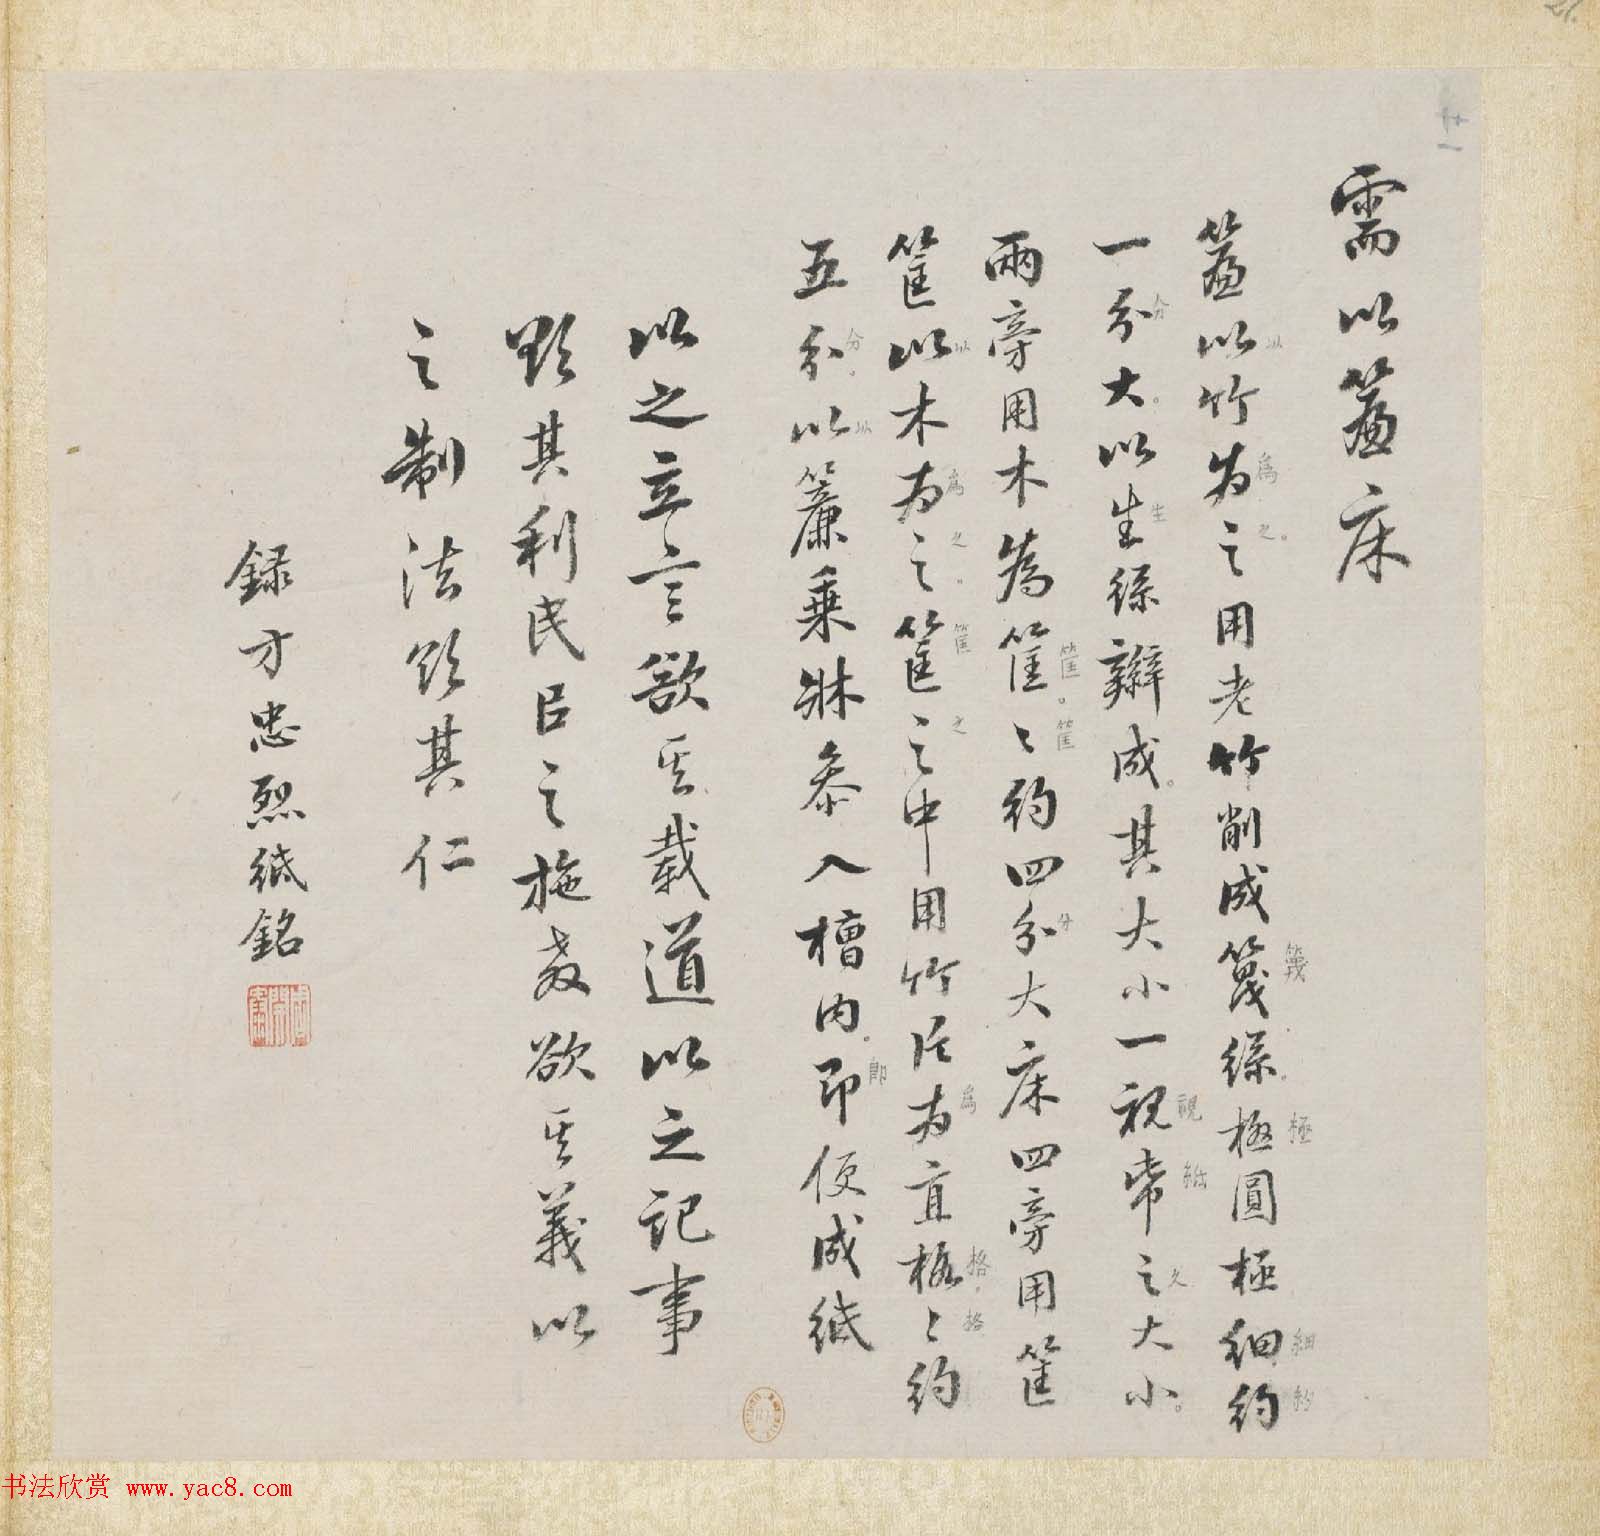 需以簾床
簾以竹为之用老竹削成篾絲極圓極細約
一分大以生絲辮成其大小一視帋之大小
兩旁用木為筐〻約四分大床四旁用筐
筐以木为之筐之中用竹片为直格〻約
五分以簾乗牀叅入槽内即便成紙
以之立言欲其載道以之記事
欲其利民臣之施教欲其義以
之制法欲其仁
録方忠烈紙銘
廿一
21.
书法欣赏 www.yac8.com